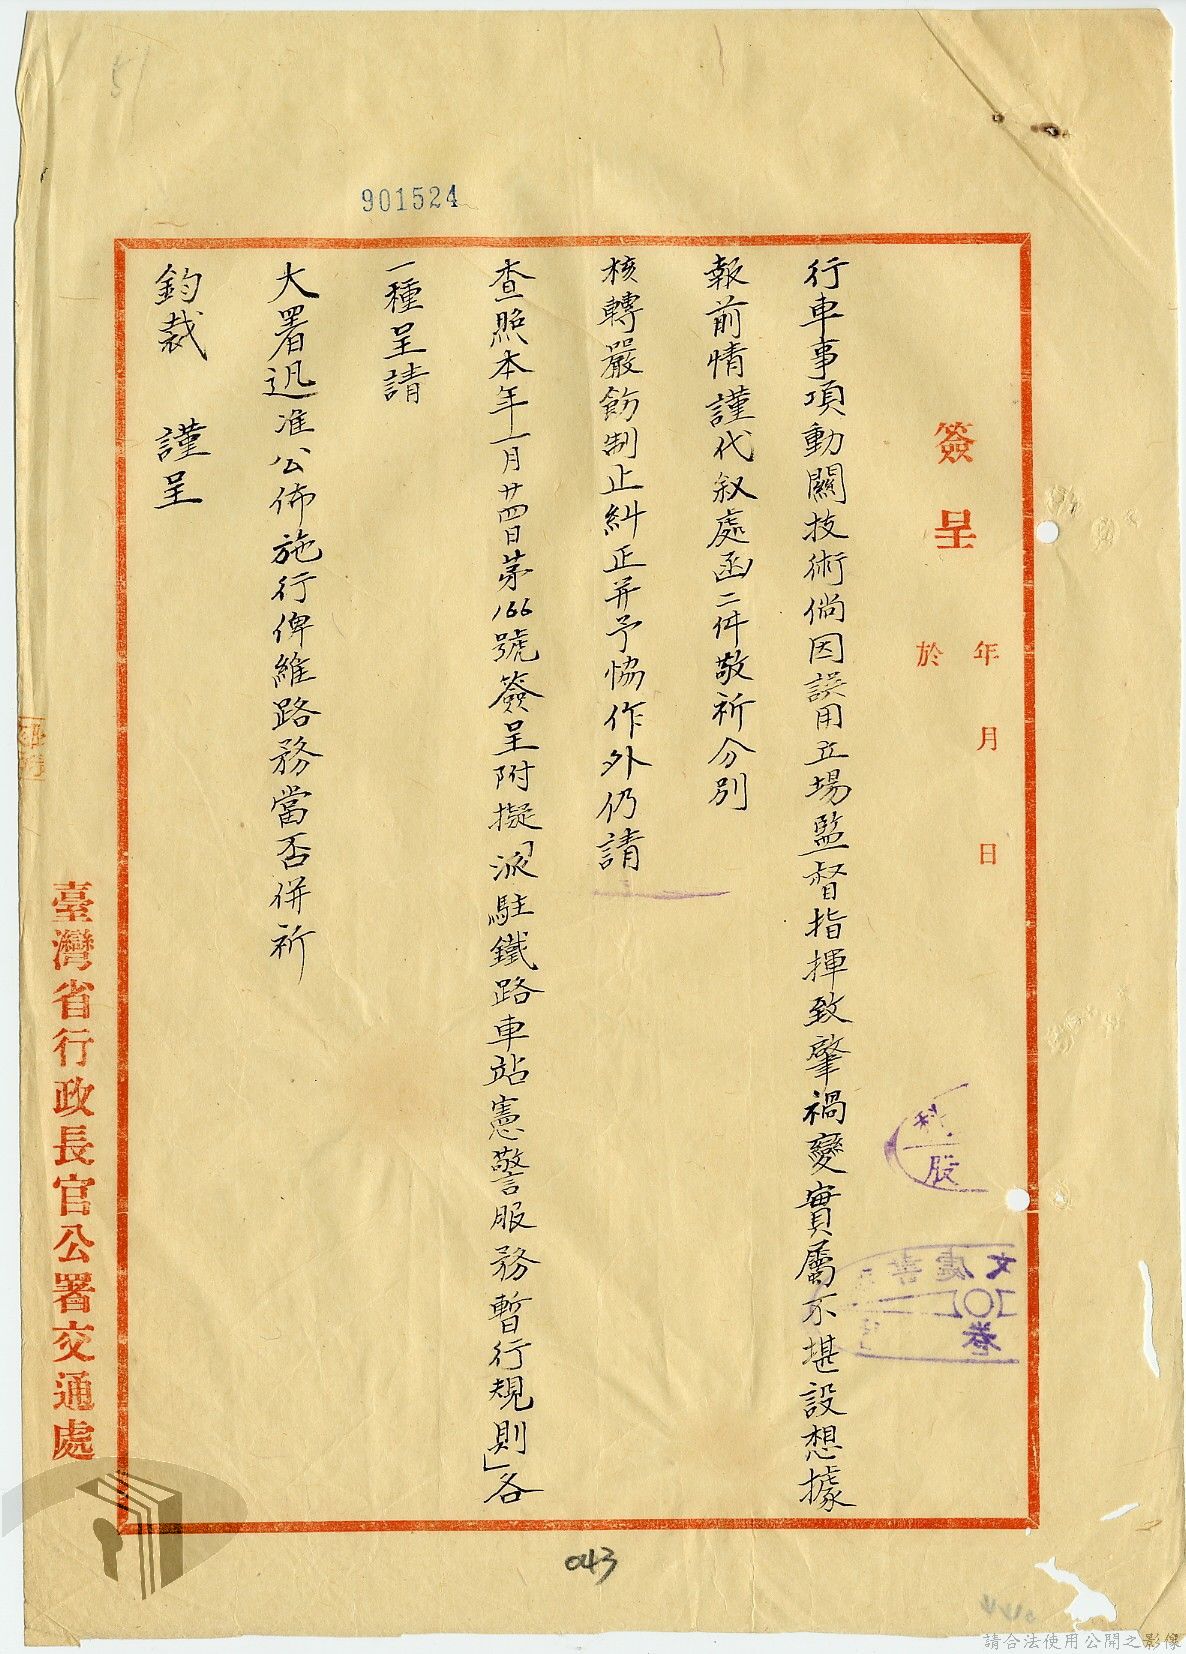 簽呈
年 月 日
於
行車事項動關技術倘因誤用立場監督指揮致肇禍變實屬不堪設想據
報前情謹代敘處函二件敬祈分別
核轉嚴飭制止糾正并予恊作外仍請
查照本年一月廿四日第166號簽呈附擬「派駐鐵路車站憲警服務暫行規則」各
一種呈請
大署迅准公佈施行俾維路務當否併祈
鈞裁 謹呈
臺灣省行政長官公署交通處
901524
043
51
科
股
卷
請合法使用公開之影像